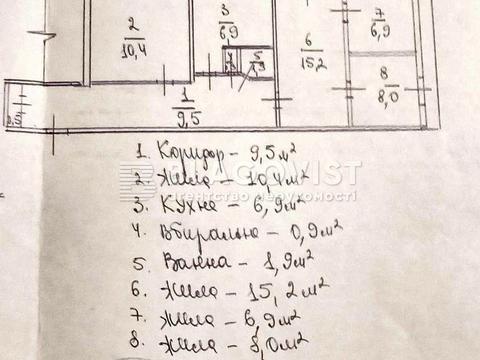 2
10,4
3
6,9
7
6,9
6
15,2
5
1,9
8
8,0
1
9,5
1. Коридор - 9,5 м²
2. Жила - 10,4 м²
3. Кухня - 6,9 м²
4. Вбиральня - 0,9 м²
5. Ванна - 1,9 м²
6. Жила - 15,2 м²
7. Жила - 6,9 м²
8. Жила - 8,0 м²
агентство нерухомості